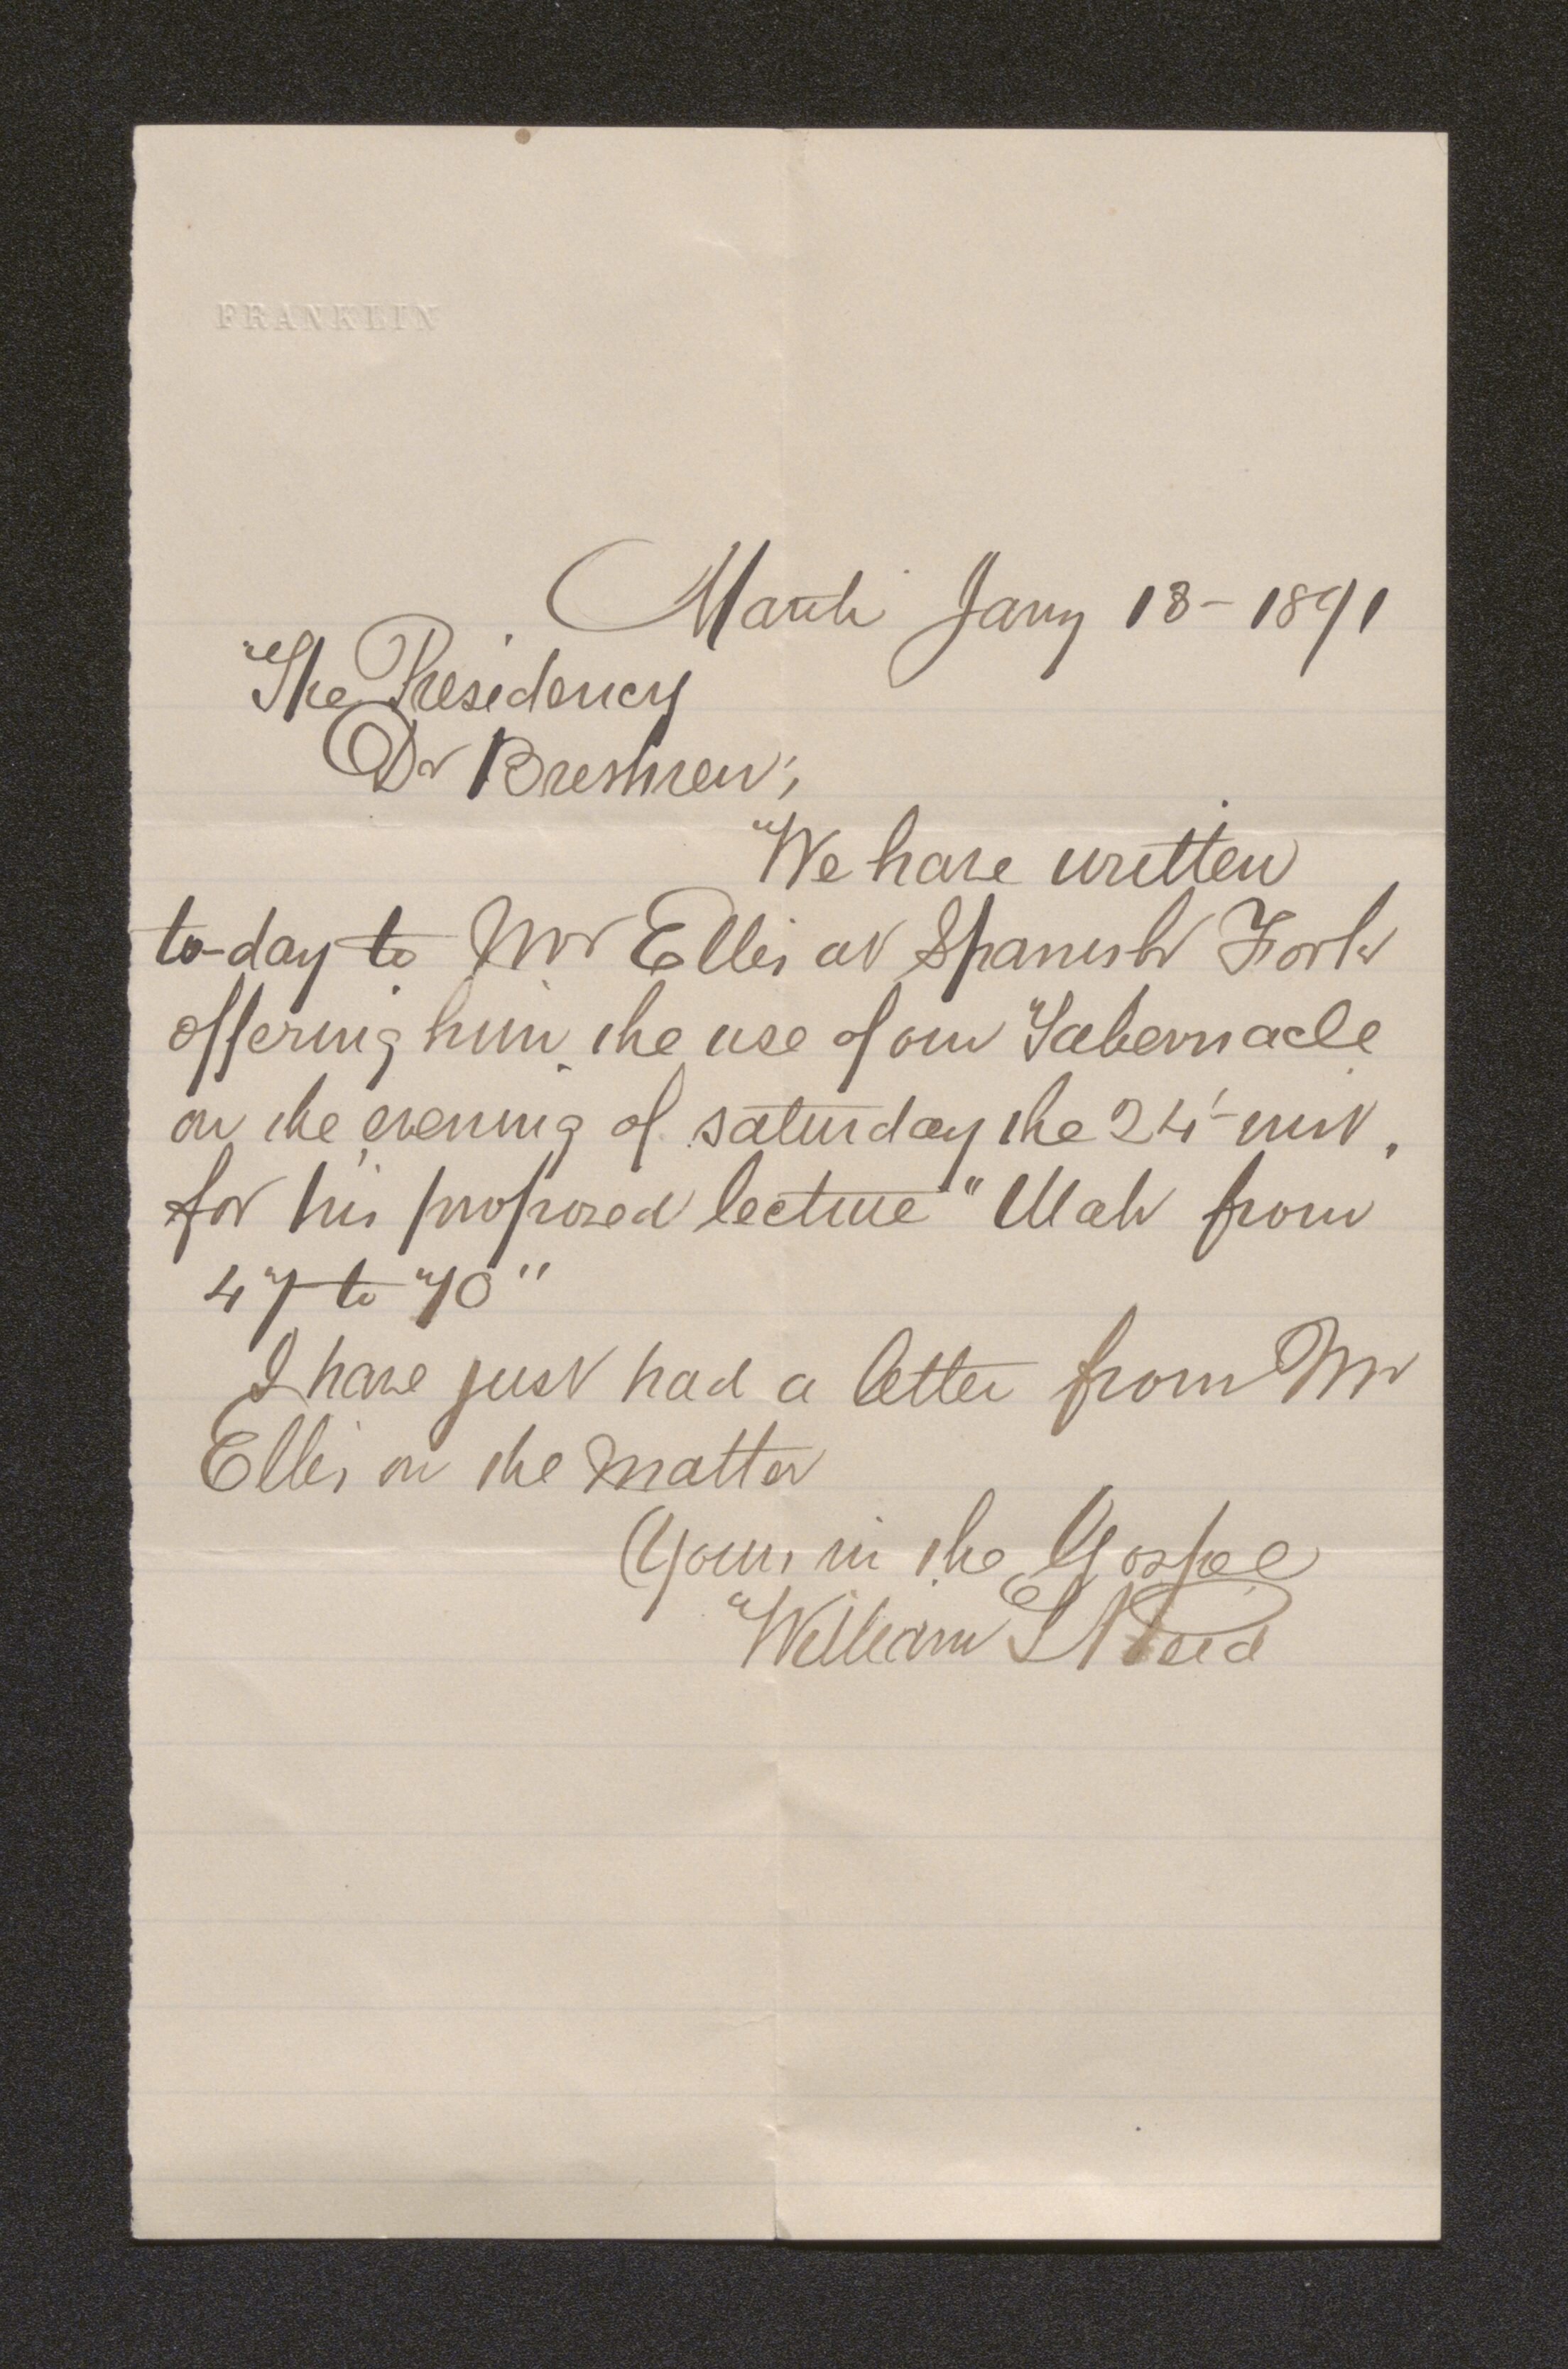 FRANKLIN
Manti Jany 18-1891
The Presidency
Dr Brethren;
We have written
to-day to Mr Ellis at Spanish Fork
offering him the use of our Tabernacle
on the evening of saturday the 24- inst.
for his proposed lecture "Utah from
47 to 70"
I have just had a letter from Mr
Ellis on the matter
Yours in the Gospel
William T Reid